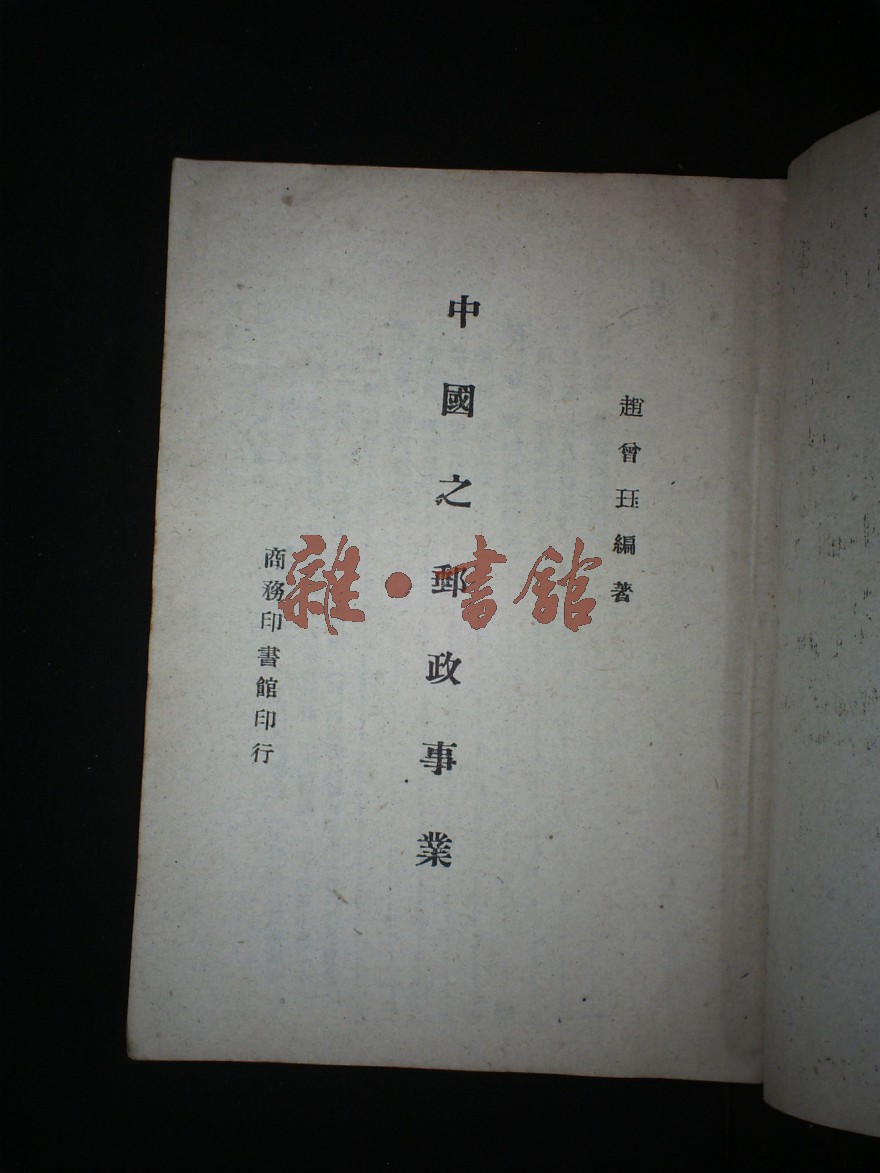 趙曾珏編著
中國之郵政事業
商務印書館印行
雜·書館